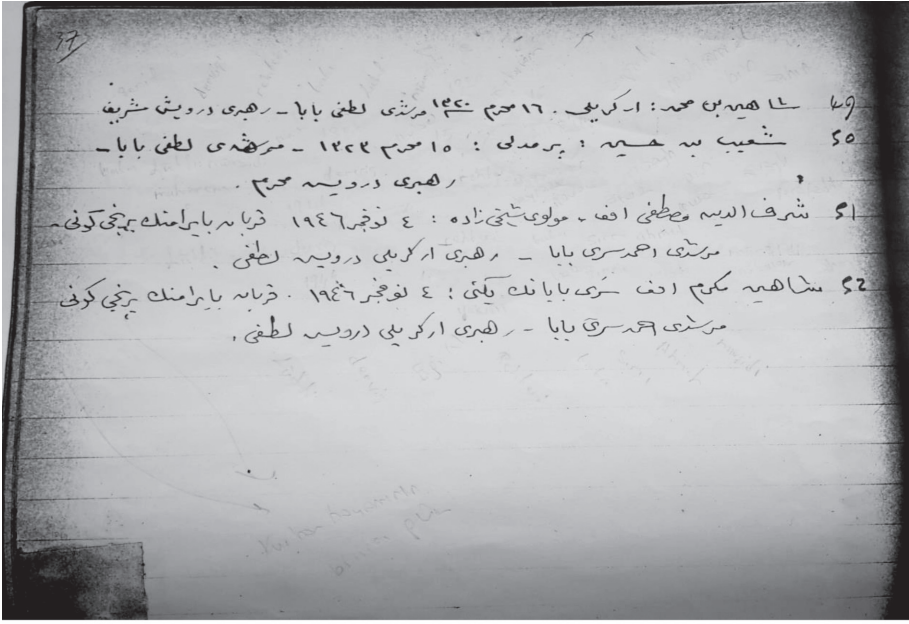 37
49 شاهين بن محمد : ارگريلى . ١٦ محرم سنه ١٣٢٠ مرشدى لطفى بابا - رهبرى درويش شريف
50 شعيب بن حسين : پرمدلى : ١٥ محرم ١٣٢٣ - مرشدى لطفى بابا -
رهبرى درويش محرم .
51 شرف الدين مصطفى افند - مولوى شيخى زاده : ٤ نوفمبر ١٩٤٦ قربان بايرامنك برنجى كونى -
مرشدى احمد سرى بابا - رهبرى ارگريلى درويش لطفى .
52 شاهين مكرم افند سرى بابانك يگنى : ٤ نوفمبر ١٩٤٦ . قربان بايرامنك برنجى كونى
مرشدى احمد سرى بابا - رهبرى ارگريلى درويش لطفى .